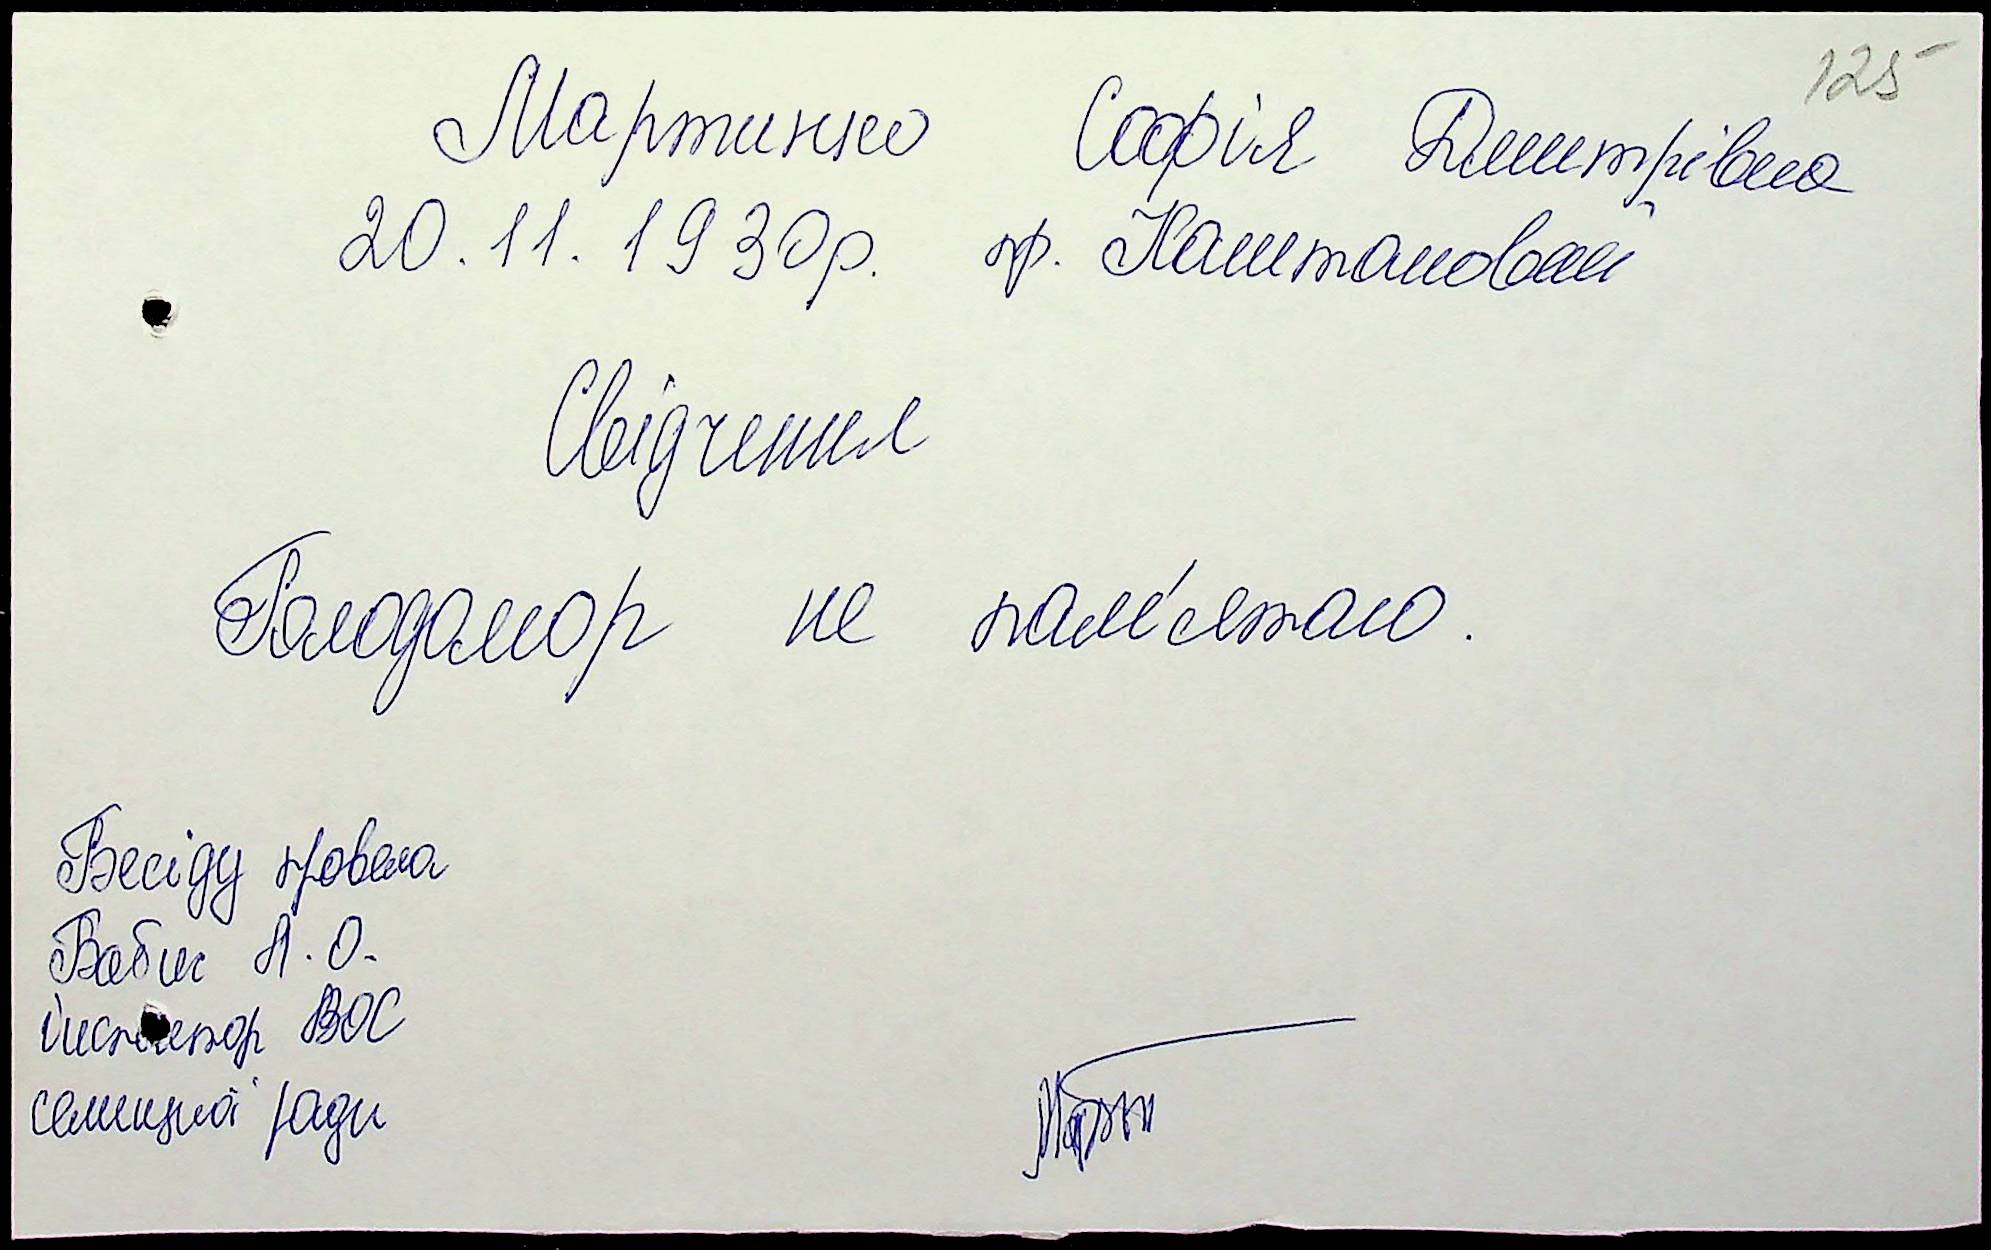 125
Мартинко Софія Дмитрівна
20.11.1930р. пр. Каштановий
Свідчення
Голодомор не пам'ятаю.
Бесіду провела
Бабик А.О.
інспектор ВОС
селищної ради